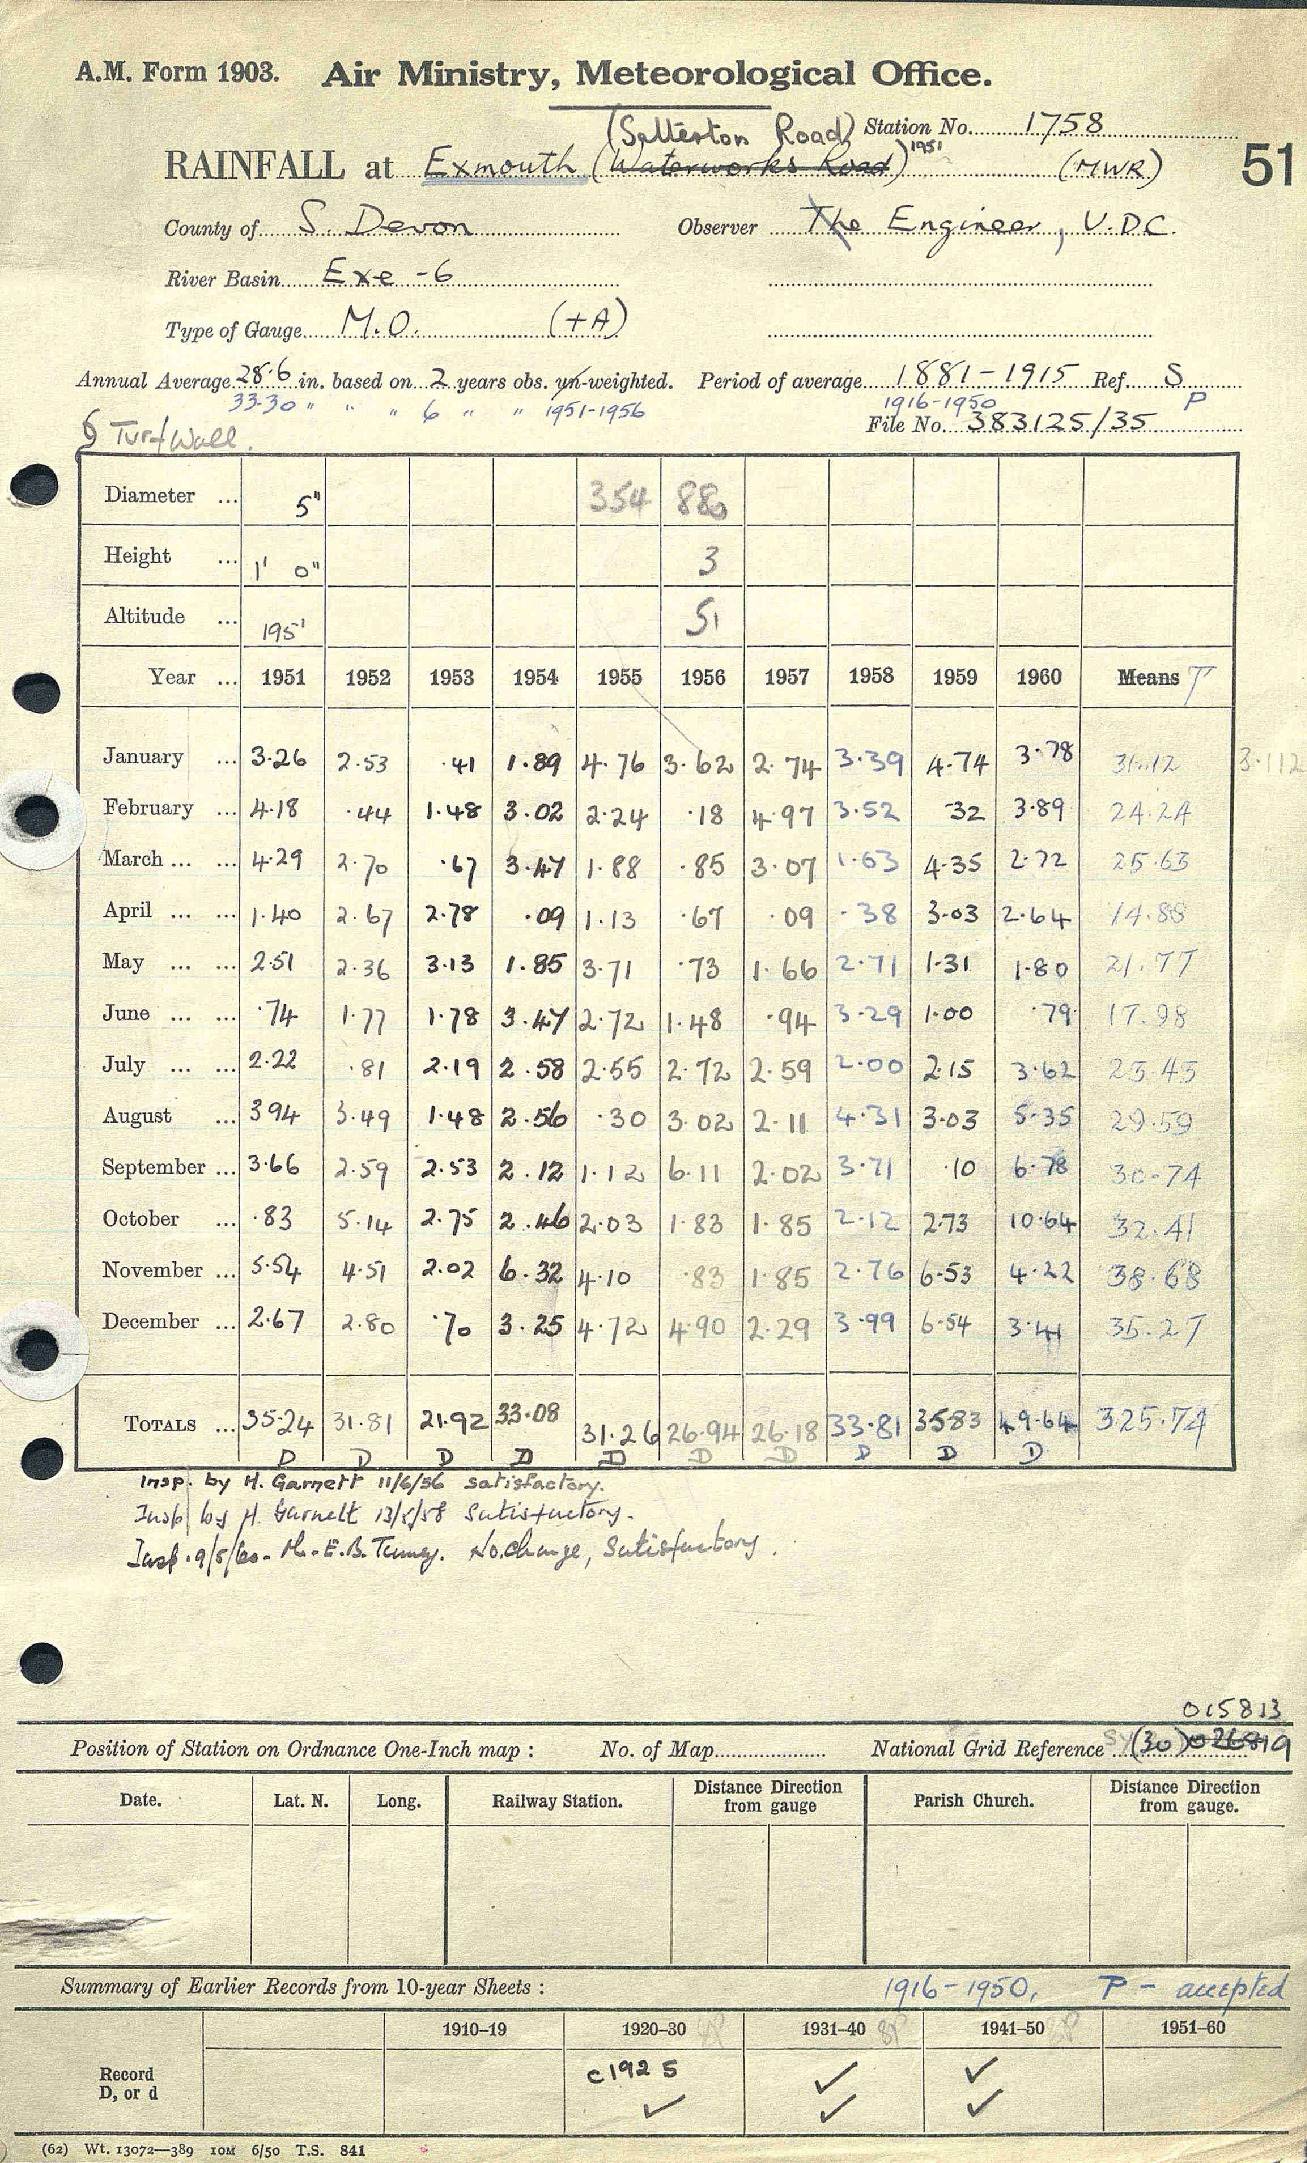 A.M. Form 1903. Air Ministry, Meteorological Office.
(Salterton Road) Station No. 1758
RAINFALL at Exmouth (Waterworks Road) 1951 (MWR) 51
County of S. Devon Observer The Engineer, U.D.C.
River Basin Exe - 6
Type of Gauge M.O. (+A)
Annual Average 28.6 in. based on 2 years obs. un-weighted. Period of average 1881-1915 Ref. S
33.30 " " " 6 " " 1951-1956 1916-1950 P
§ Turf Wall. File No. 383125/35
Diameter ... 5" 354 880
Height ... 1' 0" 3
Altitude ... 195' 51
Year ... 1951 1952 1953 1954 1955 1956 1957 1958 1959 1960 Means T
January ... 3.26 2.53 .41 1.89 4.76 3.62 2.74 3.39 4.74 3.78 31.12 3.112
February ... 4.18 .44 1.48 3.02 2.24 .18 4.97 3.52 .32 3.89 24.24
March ... ... 4.29 2.70 .67 3.47 1.88 .85 3.07 1.63 4.35 2.72 25.63
April ... ... 1.40 2.67 2.78 .09 1.13 .67 .09 .38 3.03 2.64 14.88
May ... ... 2.51 2.36 3.13 1.85 3.71 .73 1.66 2.71 1.31 1.80 21.77
June ... ... .74 1.77 1.78 3.47 2.72 1.48 .94 3.29 1.00 .79 17.98
July ... ... 2.22 .81 2.19 2.58 2.55 2.72 2.59 2.00 2.15 3.62 23.43
August ... 3.94 3.49 1.48 2.56 .30 3.02 2.11 4.31 3.03 5.35 29.59
September ... 3.66 2.59 2.53 2.12 1.12 6.11 2.02 3.71 .10 6.78 30.74
October ... .83 5.14 2.75 2.46 2.03 1.83 1.85 2.12 2.73 10.64 32.41
November ... 5.54 4.51 2.02 6.32 4.10 .83 1.85 2.76 6.53 4.22 38.68
December ... 2.67 2.80 .70 3.25 4.72 4.90 2.29 3.99 6.54 3.41 35.27
TOTALS ... 35.24 31.81 21.92 33.08 31.26 26.94 26.18 33.81 35.83 49.64 325.74
D D D D D D D D D D
Insp. by H. Garnett 11/6/56 satisfactory.
Insp by H. Garnett 13/5/58 Satisfactory.
Insp. 9/5/60 - E.B. No change, Satisfactory.
015813
Position of Station on Ordnance One-Inch map : No. of Map National Grid Reference SY (30) 026819
Date. Lat. N. Long. Railway Station. Distance Direction from gauge Parish Church. Distance Direction from gauge.
Summary of Earlier Records from 10-year Sheets : 1916-1950, P - accepted
1910–19 1920–30 1931–40 1941–50 1951–60
Record c1925 ✓ ✓
D, or d ✓ ✓ ✓
(62) Wt. 13072—389 10M 6/50 T.S. 841